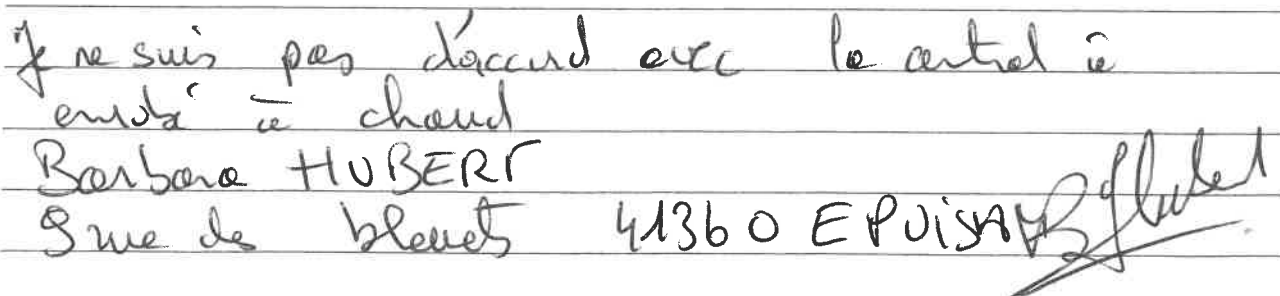 Je ne suis pas d'accord avec la central à
enrobé à chaud
Barbara HUBERT
9 rue des bleuets 41360 EPUISAY
B Hubert